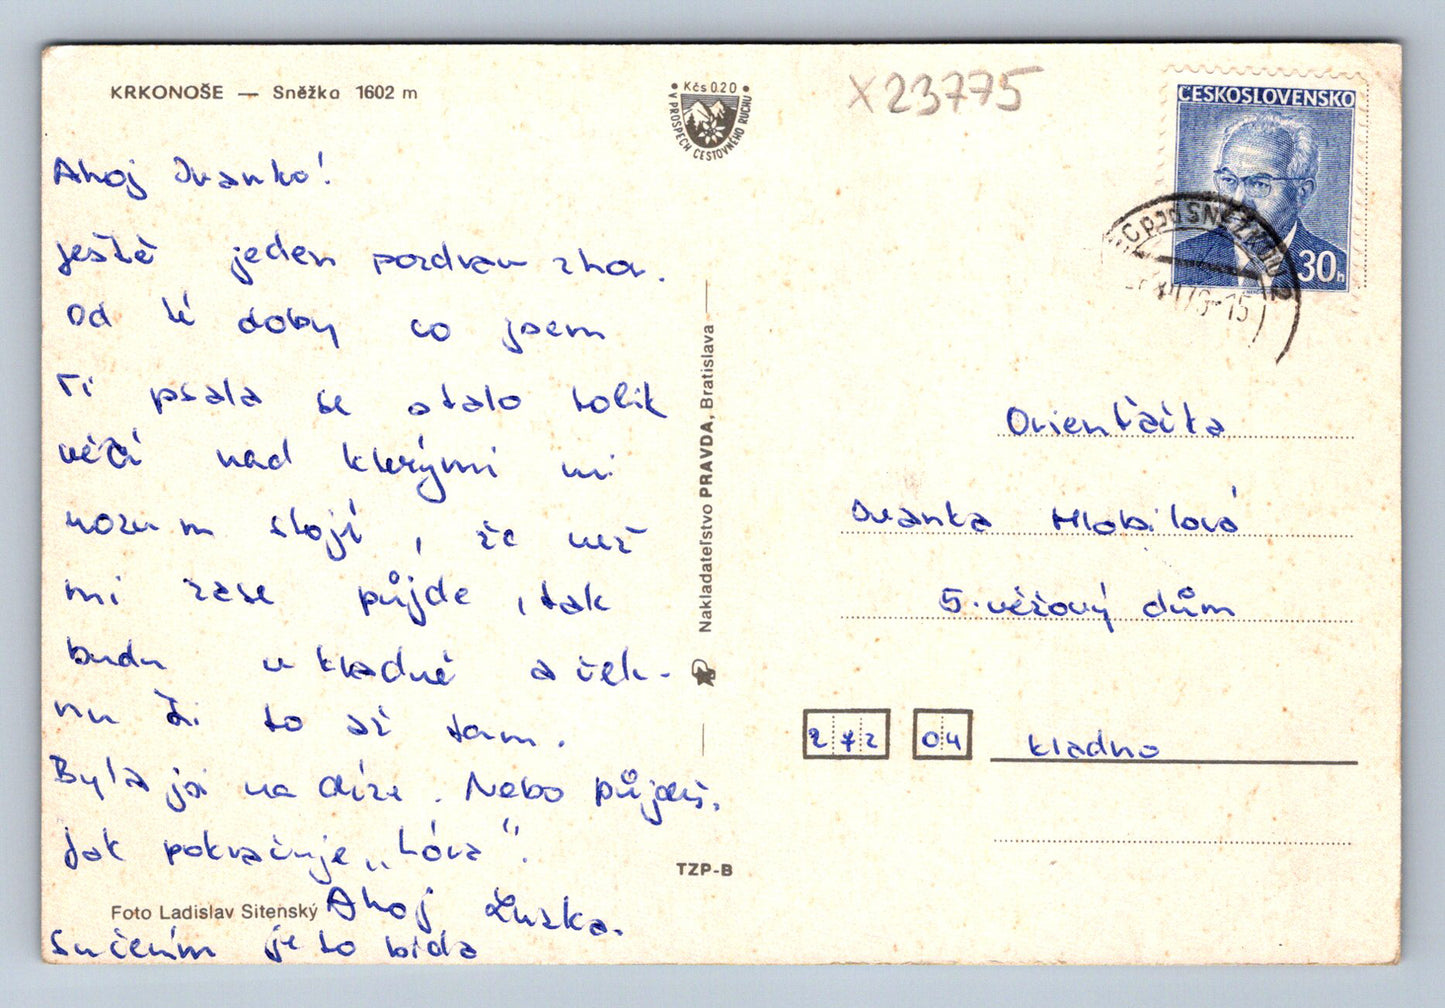 KRKONOŠE — Sněžka 1602 m
Kčs 0.20
V PROSPĚCH CESTOVNÉHO RUCHU
X23775
ČESKOSLOVENSKO
30h
Ahoj Ivanko!
ještě jeden pozdrav z hor.
Od té doby co jsem
Ti psala se stalo tolik
věcí nad kterými mi
rozum stojí, že než
mi zase půjde, tak
budu v Kladně a řek-
nu Ti to až tam.
Byla jsi na . Nebo půjdeš.
Jak pokračuje „Lóra“.
Ahoj Zuzka.
S učením je to bída
Foto Ladislav Sitenský
Nakladateľstvo PRAVDA, Bratislava
TZP-B
Orienťačka
Ivanka Hlobilová
5. věžový dům
272 04 Kladno